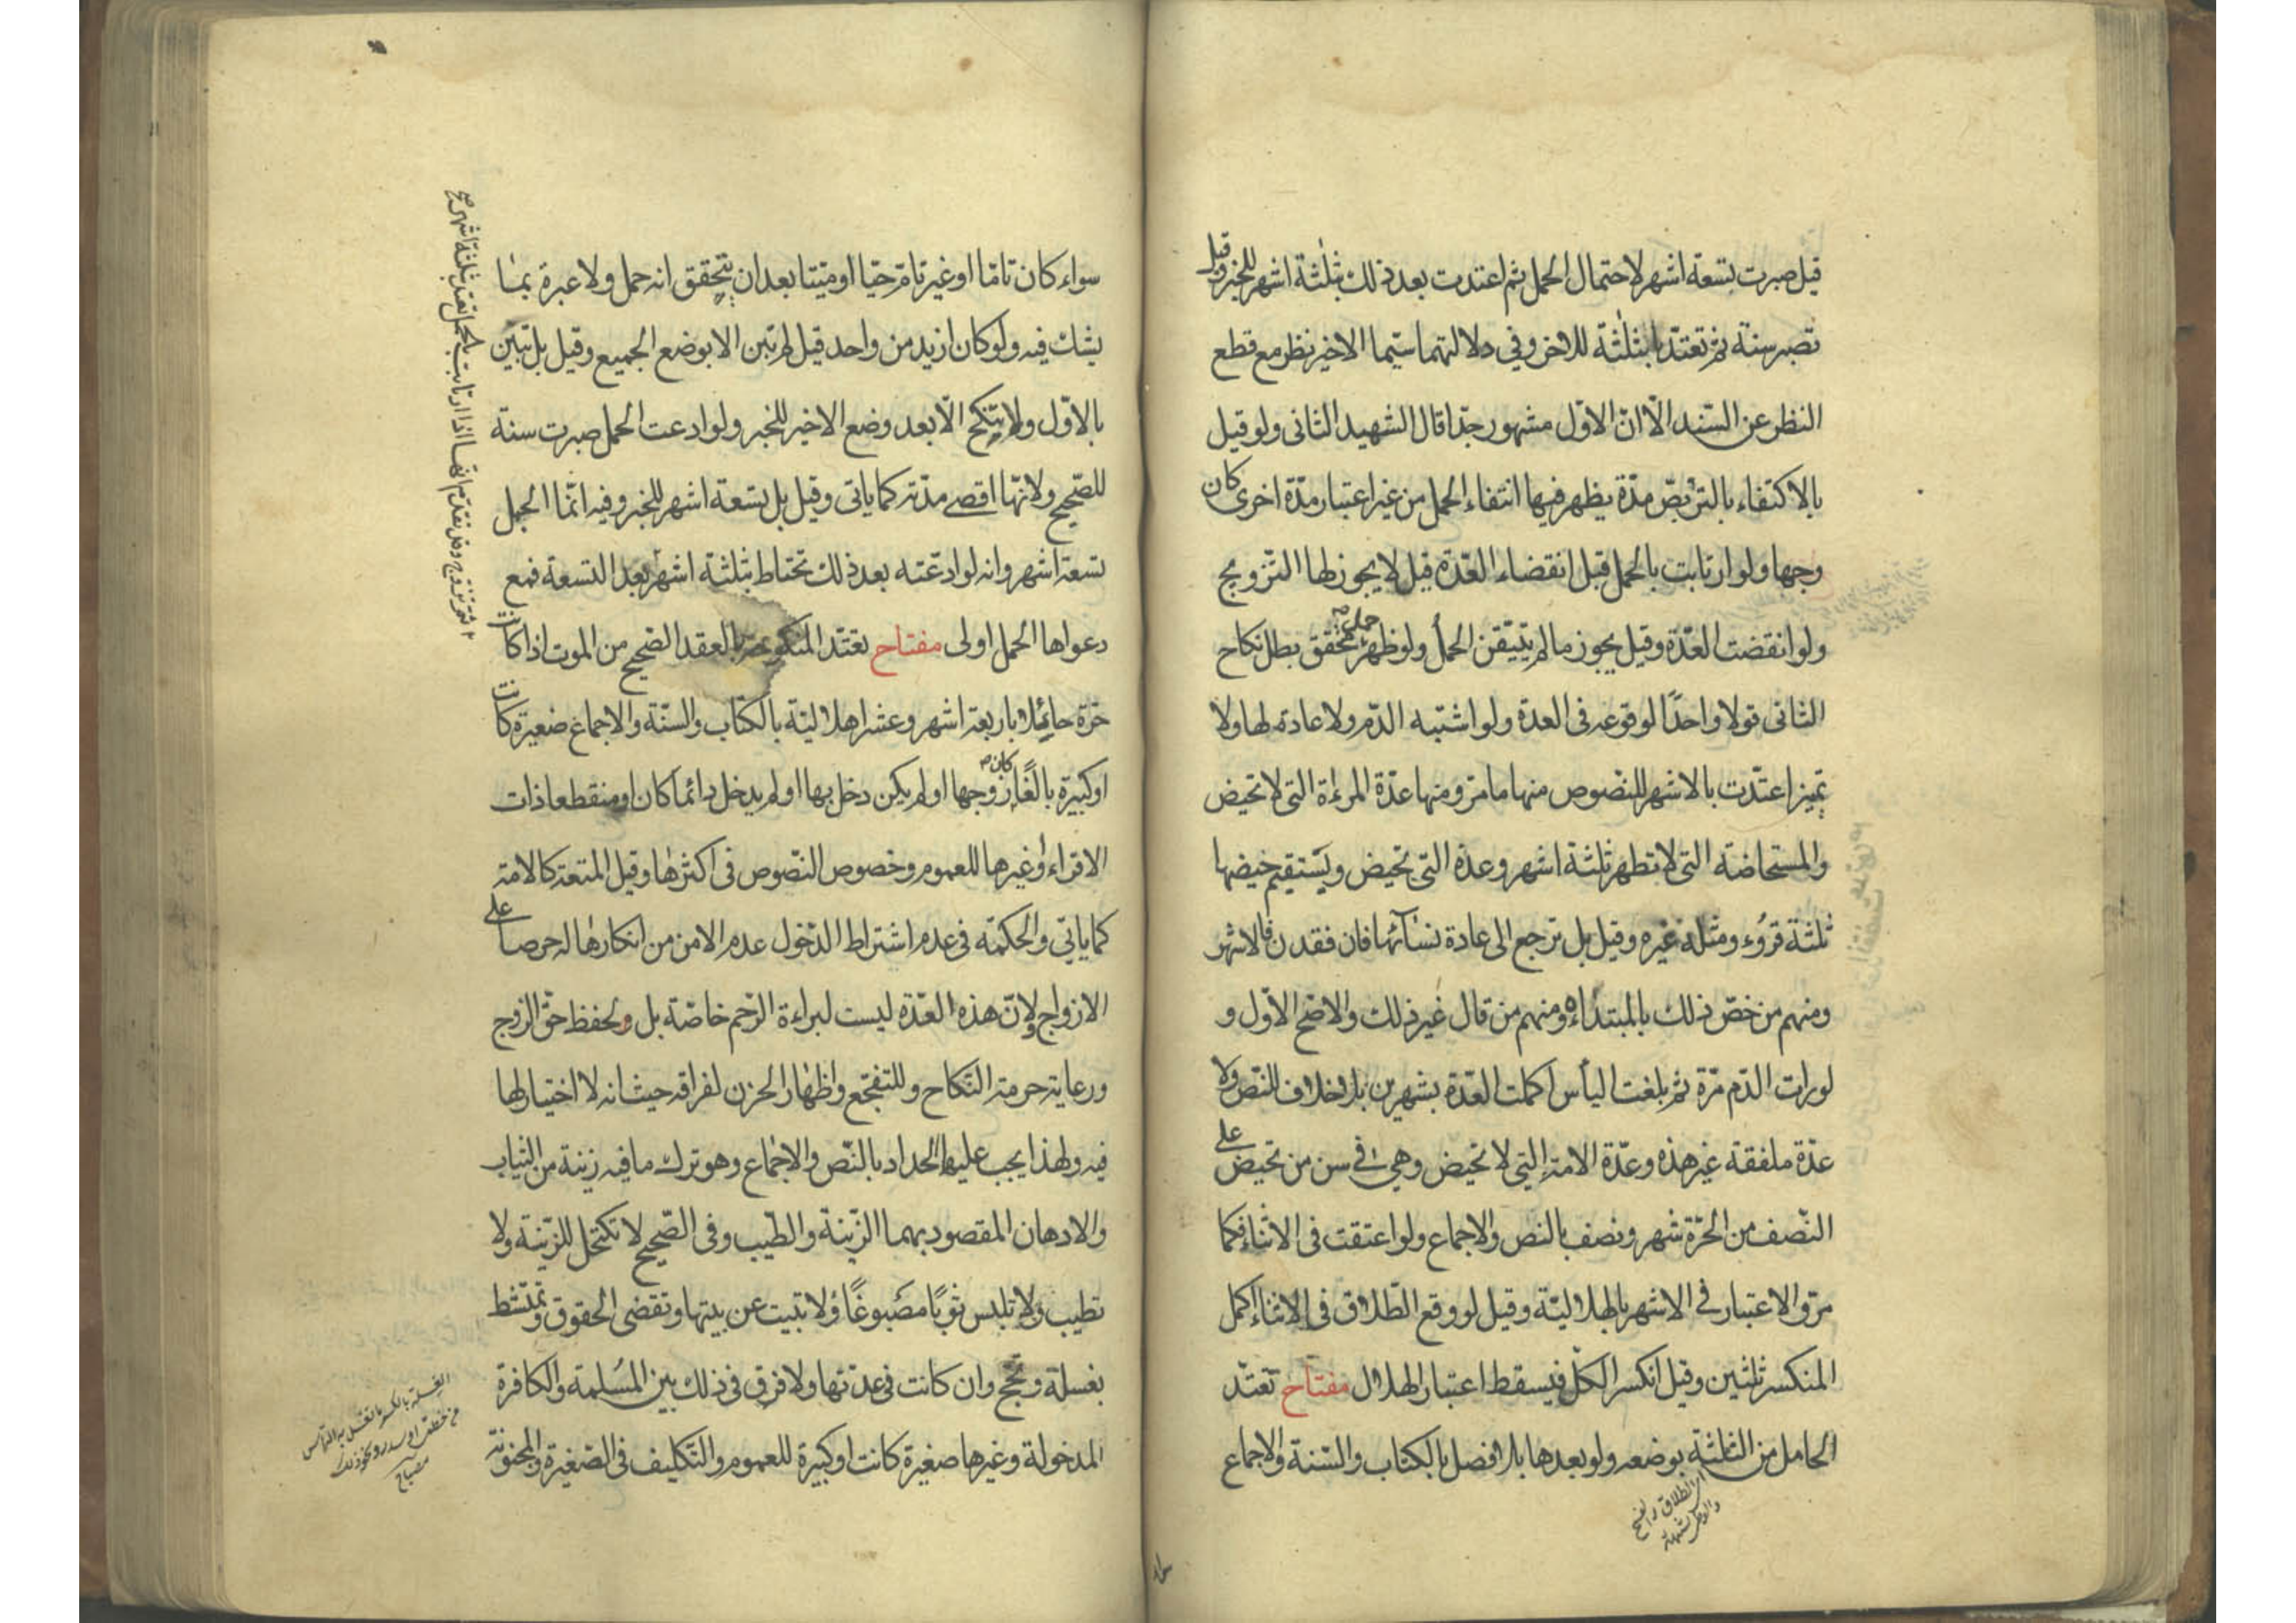 قيل صبرت بتسعة اشهر لاحتمال الحمل ثم اعتدت بعد ذلك بثلثة اشهر للخبر وقيل
تصبر سنة ثم تعتد بثلثة للاخر وفي دلالتهما سيما الاخير نظر مع قطع
النظر عن السند الا ان الاول مشهور جدا قال الشهيد الثانى ولو قيل
بالاكتفاء بالتربص مدة يظهر فيها انتفاء الحمل من غير اعتبار مدة اخرى كان
وجها ولو ارتابت بالحمل قبل انقضاء العدة قيل لا يجوز لها التزويج
ولو انقضت العدة وقيل يجوز ما لم يتيقن الحمل ولو ظهر حمل محقق بطل نكاح
الثانى قولا واحدا لوقوعه فى العدة ولو اشتبه الدم ولا عادة لها ولا
تميز اعتدت بالاشهر للنصوص منها ما مر ومنها عدة المرءة التى لا تحيض
والمستحاضة التى لا تطهر ثلثة اشهر وعدة التى تحيض ويستقيم حيضها
ثلثة قروء ومثله غيره وقيل بل ترجع الى عادة نسائها فان فقدن فالاشهر
ومنهم من خص ذلك بالمبتداه ومنهم من قال غير ذلك والاصح الاول و
لو رات الدم مرة ثم بلغت اليأس اكملت العدة بشهرين بلا خلاف للنص ولا
عدة ملفقة غير هذه وعدة الامة التي لا تحيض وهي في سن من تحيض على
النصف من الحرة شهر ونصف بالنص والاجماع ولو اعتقت فى الاثناء فكما
مر والاعتبار في الاشهر بالهلالية وقيل لو وقع الطلاق فى الاثناء اكمل
المنكسر ثلثين وقيل انكسر الكل فيسقط اعتبار الهلال مفتاح تعتد
الحامل من الثلثة بوضعه ولو بعدها بلا فصل بالكتاب والسنة والاجماع
اى الطلاق والفسخ
والوطى بشبهة
سواء كان تاما او غير تام حيا او ميتا بعد ان يتحقق انه حمل ولا عبرة بما
يشك فيه ولو كان ازيد من واحد قيل لم تبن الا بوضع الجميع وقيل بل تبين
بالاول ولا تنكح الا بعد وضع الاخير للخبر ولو ادعت الحمل صبرت سنة
للصحيح ولانها اقصى مدته كما ياتى وقيل بل بتسعة اشهر للخبر وفيه انما الحمل
تسعة اشهر وانه لو ادعته بعد ذلك تحتاط بثلثة اشهر بعد التسعة فمع
دعواها الحمل اولى مفتاح تعتد المنكوحة بالعقد الصحيح من الموت اذا كانت
حرة حائلا باربعة اشهر وعشرا هلالية بالكتاب والسنة والاجماع صغيرة كانت
او كبيرة بالغا كان زوجها او لم يكن دخل بها او لم يدخل دائما كان او منقطعا ذات
الاقراء او غيرها للعموم وخصوص النصوص فى اكثرها وقيل المتعة كالامة
كما ياتى والحكمة فى عدم اشتراط الدخول عدم الامن من انكارها له حرصا على
الازواج ولان هذه العدة ليست لبراءة الرحم خاصة بل ولحفظ حق الزوج
ورعاية حرمة النكاح وللتفجع واظهار الحزن لفراقه حيث انه لا اختيار لها
فيه ولهذا يجب عليها الحداد بالنص والاجماع وهو ترك ما فيه زينة من الثياب
والادهان المقصود بهما الزينة والطيب وفى الصحيح لا تكتحل للزينة ولا
تطيب ولا تلبس ثوبا مصبوغا ولا تبيت عن بيتها وتقضى الحقوق وتمتشط
بغسلة وتحج وان كانت فى عدتها ولا فرق فى ذلك بين المسلمة والكافرة
المدخولة وغيرها صغيرة كانت او كبيرة للعموم والتكليف فى الصغيرة والمجنونة
انها اذا ارتابت بالحمل تعتد بثلثة اشهر
الغسلة بالكسر ما تغسل به الراس
من خطمى او سدر ونحو ذلك
مصباح